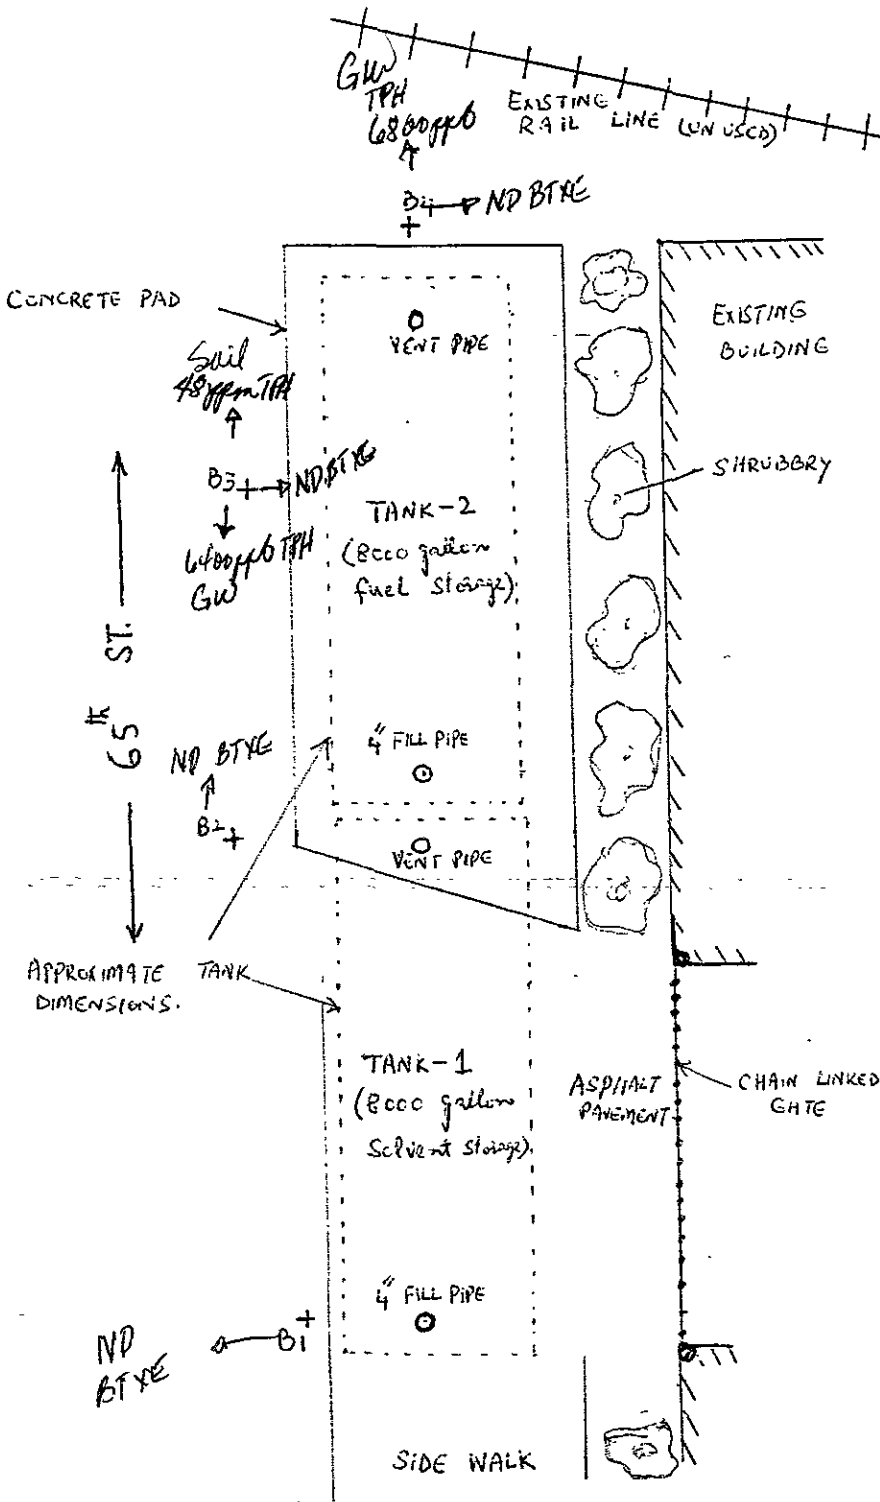 GW
TPH
6800ppb
EXISTING
RAIL LINE (UNUSED)
B4 ND BTXE
CONCRETE PAD
VENT PIPE
EXISTING
BUILDING
Soil
48ppm TPH
SHRUBBRY
B3 ND BTXE
TANK-2
(8000 gallon
fuel storage)
6400ppb TPH
GW
65th ST.
ND BTXE
4" FILL PIPE
B2
VENT PIPE
APPROXIMATE TANK
DIMENSIONS.
TANK-1
(8000 gallon
Solvent storage)
ASPHALT
PAVEMENT
CHAIN LINKED
GATE
4" FILL PIPE
B1
ND
BTXE
SIDE WALK